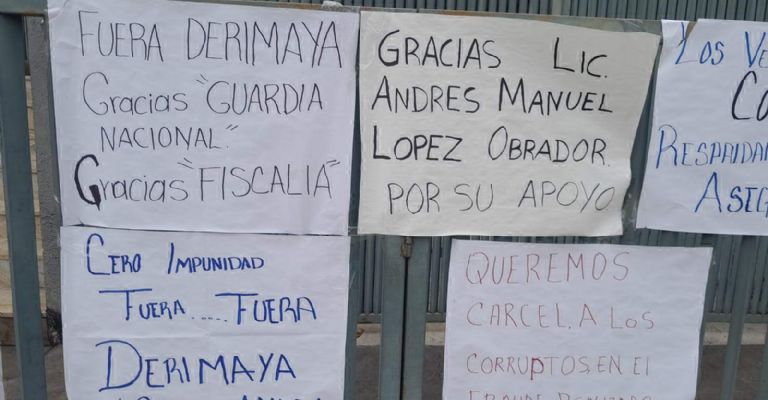 FUERA DERIMAYA
Gracias "GUARDIA
NACIONAL."
Gracias "FISCALIA"
GRACIAS LIC.
ANDRES MANUEL
LOPEZ OBRADOR.
POR SU APOYO
LOS
RESPALDAN
CERO IMPUNIDAD
FUERA..... FUERA
DERIMAYA
QUEREMOS
CARCEL. A LOS
CORRUPTOS. EN El
FRAUDE